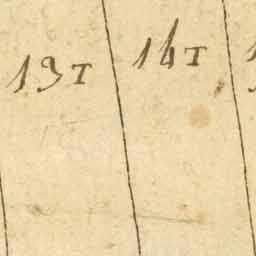 13T 14T